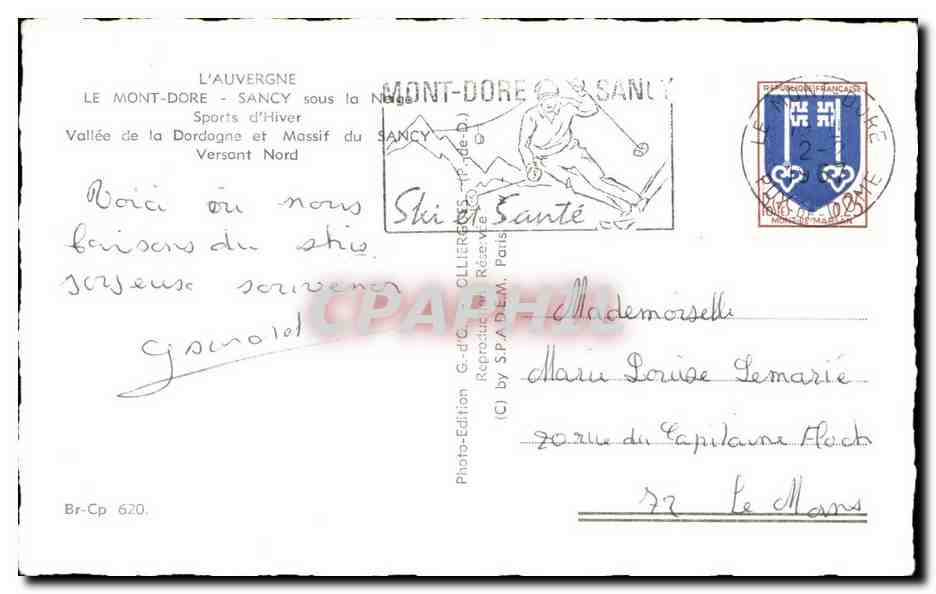 L'AUVERGNE
LE MONT-DORE - SANCY sous la Neige
Sports d'Hiver
Vallée de la Dordogne et Massif du SANCY
Versant Nord
Voici où nous
faisons du skis
joyeux souvenir
Br-Cp 620.
MONT-DORE SANCY
Ski et Santé
Photo-Edition G.-d'O. OLLIERGUES (P.-de-D.)
Reproduction Réservée
(C) by S.P.A.D.E.M. Paris
REPUBLIQUE FRANÇAISE
MONT-DE-MARSAN
LE MONT-DORE
PUY-DE-DOME
CPAPHIL
Mademoiselle
Marie Louise Lemarié
rue du Capitaine Floch
72 Le Mans